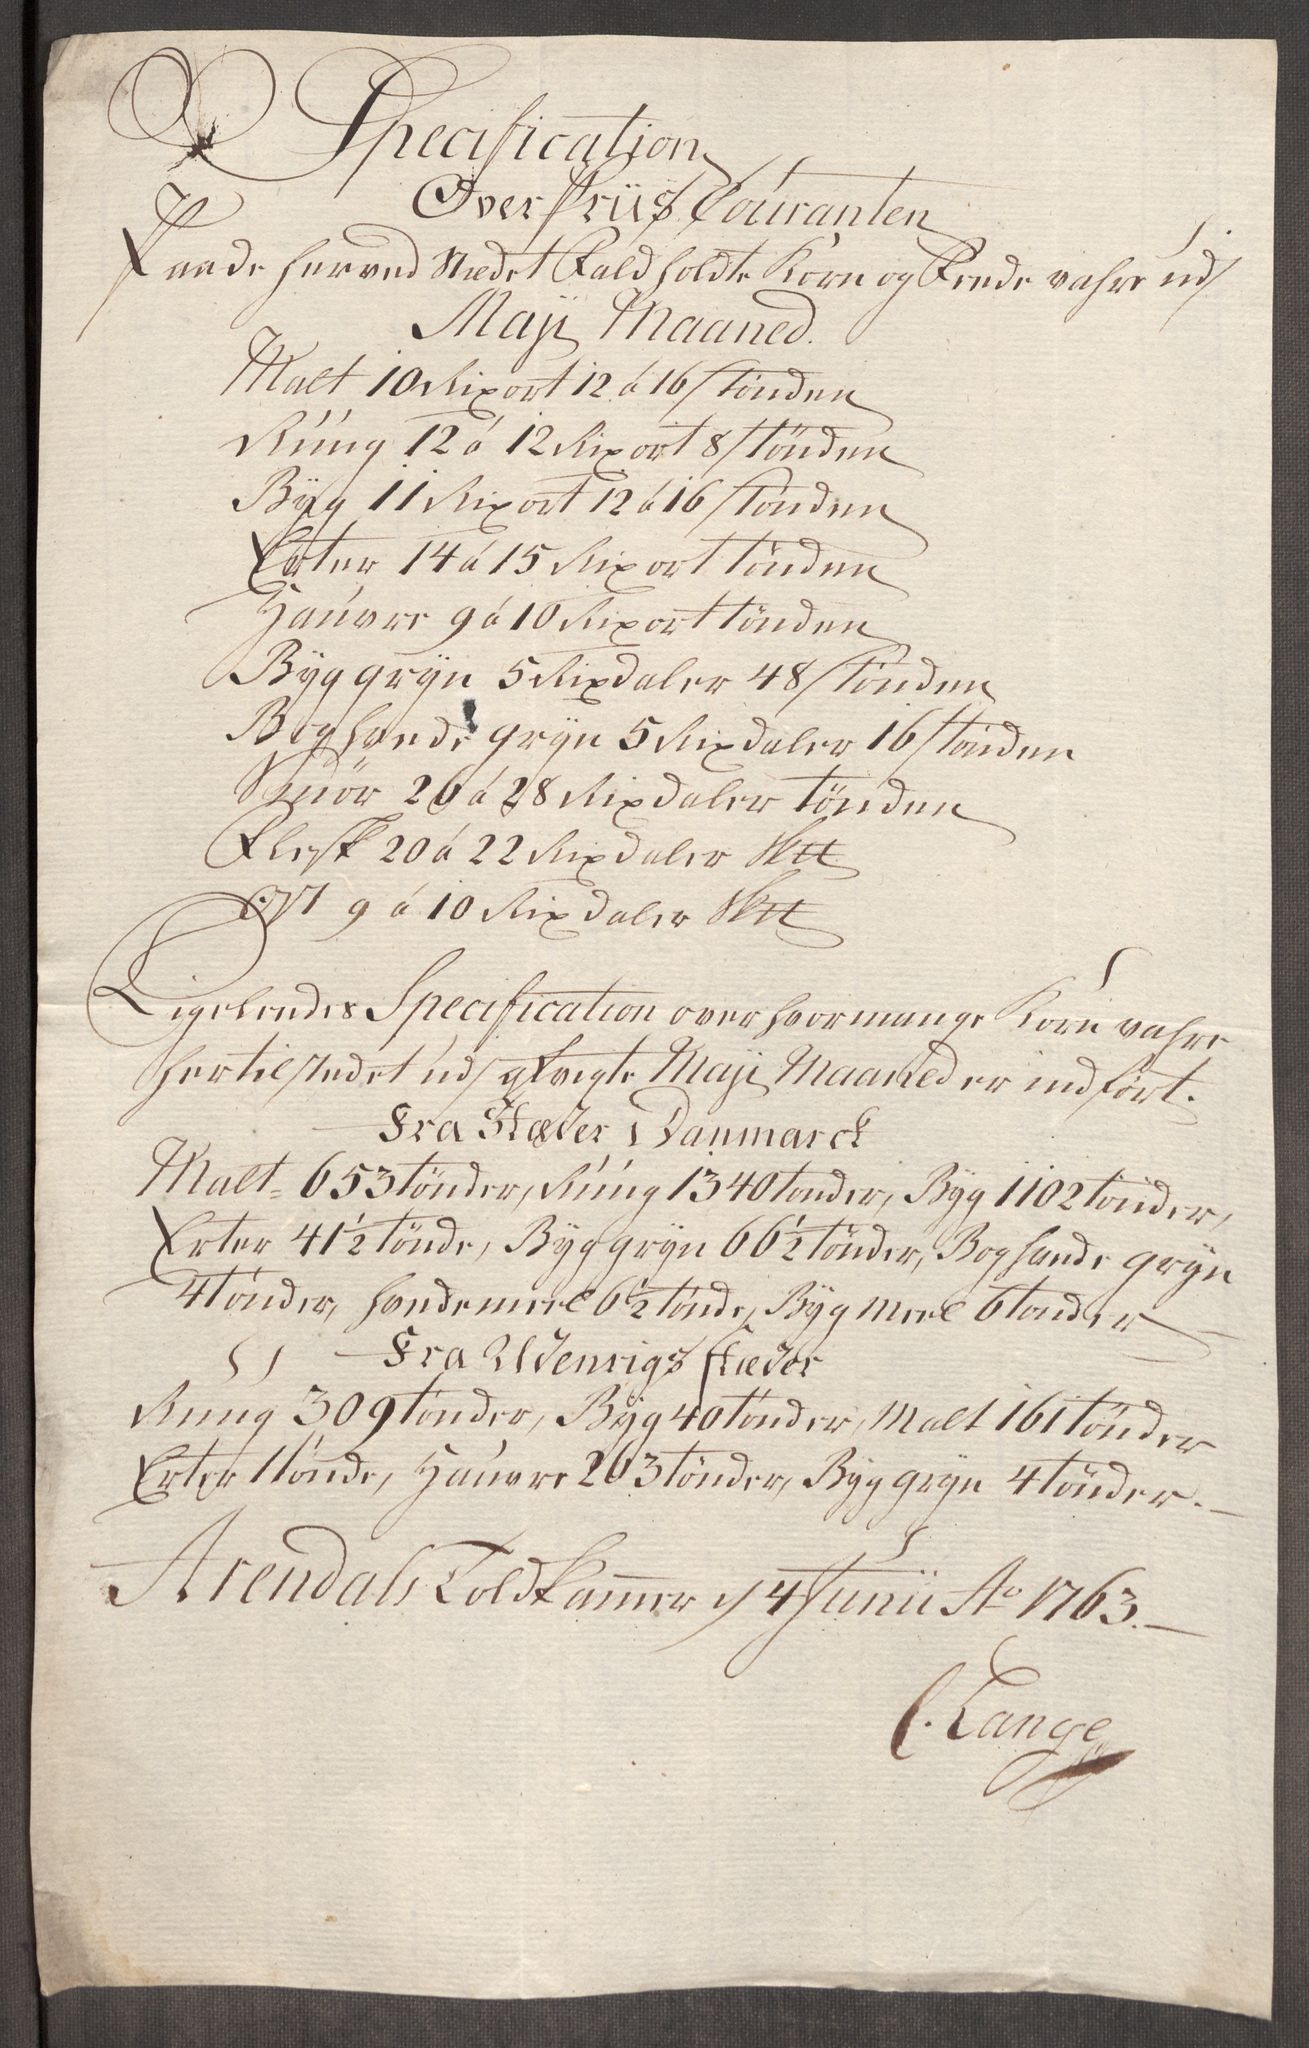 Specification
Over Priis Couranten
Paa de herved Stædet Fald holdte Korn og Fende vahre udj
Maji Maaned.
Malt 10 Rixort 12 á 16 s tönden
Rúúg 12 á 12 Rixort 8 s tönden
Byg 11 Rixort 12 á 16 s tönden
Erter 14 á 15 Rixort tönden
Haúvre 9 á 10 Rixort tönden
Byg gryn 5 Rixdaler 48 s tönden
Boghvede gryn 5 Rixdaler 16 s tönden
Smör 26 á 28 Rixdaler tönden
Flesk 20 á 22 Rixdaler Sktt
Ost 9 á 10 Rixdaler Sktt
Ligeleedes Specification over hvormange Korn vahre
hertil stedet udj Maji Maaned er indfört.
Fra Stæder i Danmarck
Malt = 653 tönder, Rúúg 1340 tönder, Byg 1102 tönder,
Erter 41 1/2 tönde, Byg gryn 66 1/2 tönder, Boghvede gryn
4 tönder, hvedemeel 6 1/2 tönde, Byg Meel 6 tönder
Fra Udenrigs stæder
Rúúg 309 tönder, Byg 40 tönder, Malt 161 tönder
Erter 1 tönde, Haúvre 263 tönder, Byg gryn 4 tönder. —
Arendals Toldkammer d 4 Junii Ao 1763. —
C. Lange